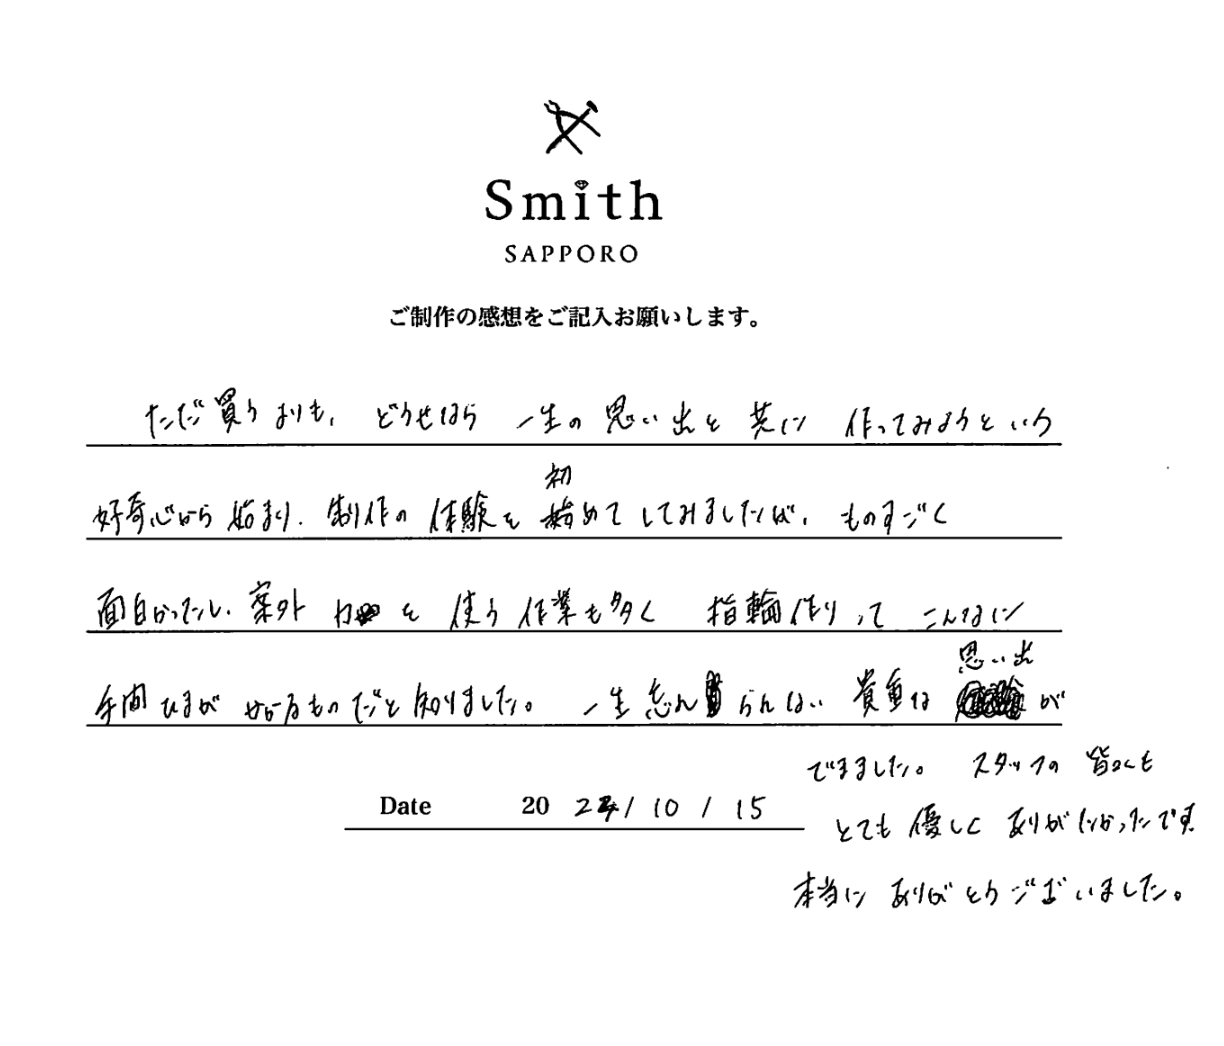 Smith
SAPPORO
ご制作の感想をご記入お願いします。
ただ買うよりも、どうせなら 一生の思い出と共に 作ってみようという
初
好奇心から始まり、制作の体験を めてしてみましたが、ものすごく
面白かったし、案外 力を使う作業も多く 指輪作りって こんなに
思い出
手間ひまが かかるものだと知りました。一生忘れられない 貴重な が
できました。 スタッフの 皆さんも
Date 2024/10/15
とても 優しく ありがたかったです
本当に ありがとうございました。